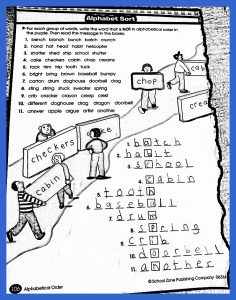 Alphabet Sort
For each group of words, write the word that is NOT in alphabetical order in
the puzzle. Then read the message in the boxes.
1. bench branch bunch batch crunch
2. hand hat head habit helicopter
3. shatter shed ship school shutter
4. cake checkers cabin chop creamy
5. track trim trip tooth tuck
6. bright bring brown baseball bumpy
7. carton drum doghouse doorbell drag
8. sting string stuck sweater spring
9. crib cracker crayon creep crest
10. different doghouse drag dragon doorbell
11. answer apple argue artist another
cab
chop
crea
cake
checkers
cabin
1. batch
2. habit
3. school
4. cabin
5. tooth
6. baseball
7. drum
8. spring
9. crib
10. doorbell
11. another
106 Alphabetical Order
© School Zone Publishing Company